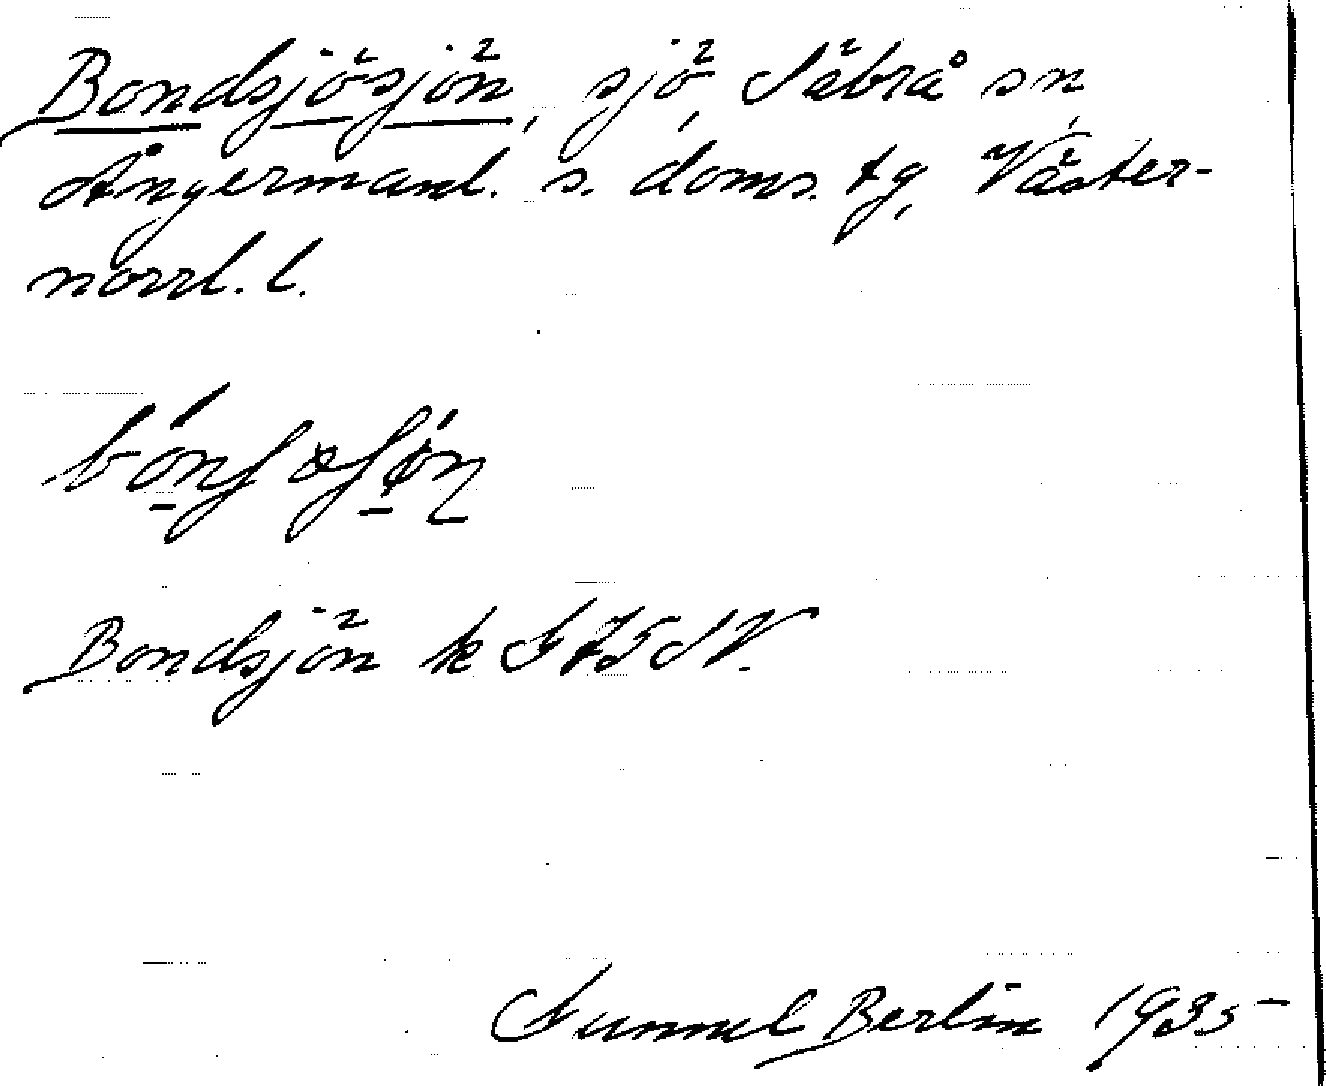 Bondsjösjön, sjö, Säbrå sn,
Ångermanl. s. doms. tg, Väster-
norrl. l.
Bondsjön k G 75 SV.
Gunnel Berlin 1935